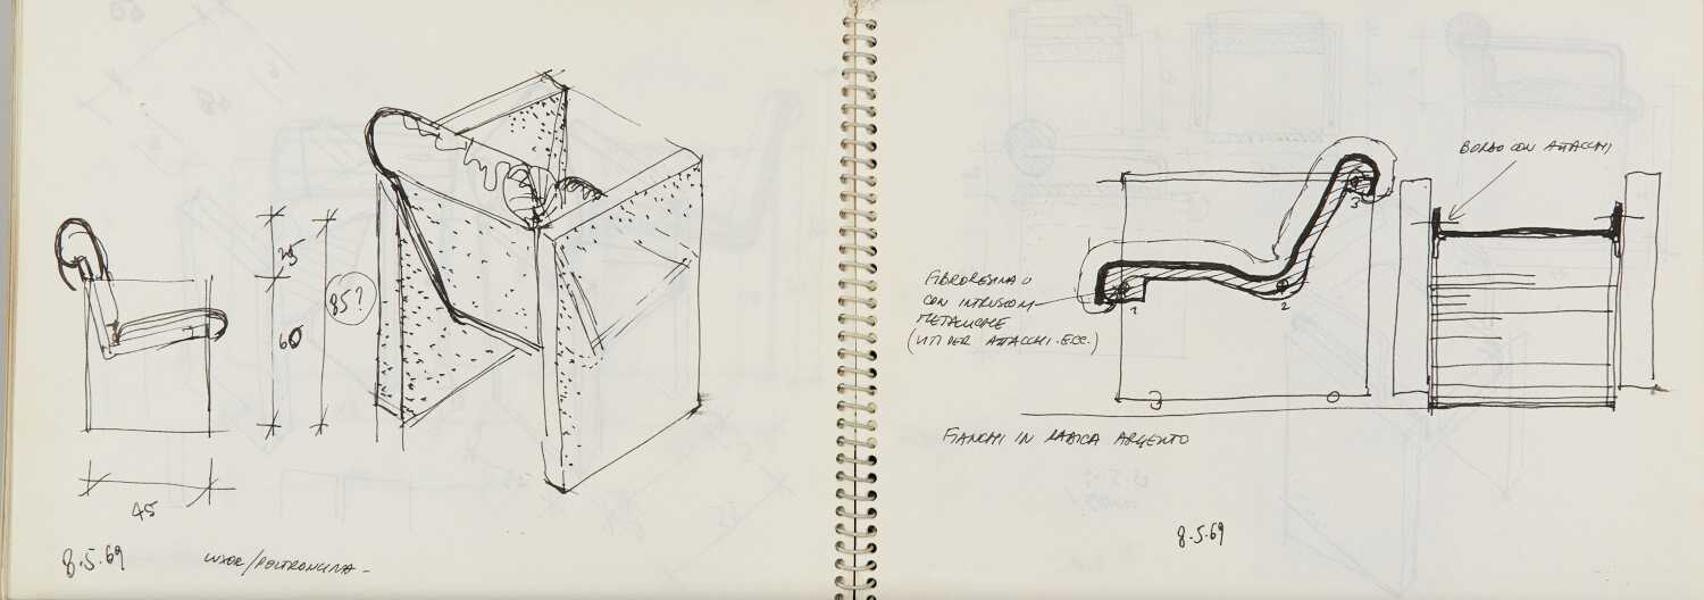 25
85?
60
45
8.5.69
LUXOR/POLTRONCINA -
BORDO CON ATTACCHI
3
FIBRORESINA O
CON INTRUSIONI
METALLICHE
(VITI PER ATTACCHI. ECC.)
1
2
FIANCHI IN RADICA ARGENTO
8.5.69